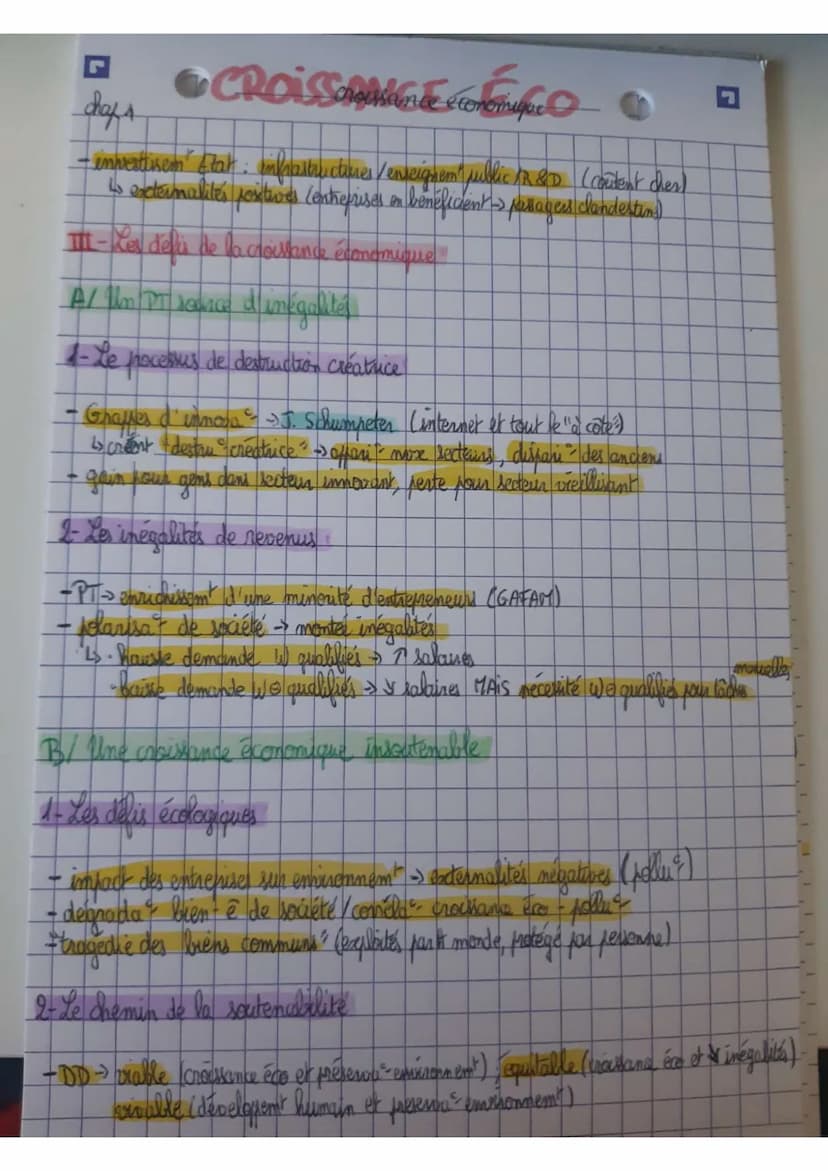 CROISSANCE ÉCO
croissance économique
chap 1
- investissemt État : infrastructures/enseignemt public/R&D (coûtent cher)
↳ externalités positives (entreprises en bénéficient → passagers clandestins)
III - Les défis de la croissance économique
A/ Un PT source d'inégalités
1- Le processus de destruction créatrice
- Grappes d'innova° → J. Schumpeter (internet et tout le "à côté")
↳ créent "destru° créatrice" → appari° nvx secteurs, dispari° des anciens
- gain pour gens dans secteur innovant, perte pour secteur vieillissant
2- Les inégalités de revenus :
- PT → enrichissemt d'une minorité d'entrepreneurs (GAFAM)
- polarisa° de société → montée inégalités
↳ - hausse demande W qualifiés → ↑ salaires
- baisse demande W ⊖ qualifiés → ↘ salaires MAIS nécessité W ⊖ qualifiés pour tâches
manuelles
B/ Une croissance économique insoutenable
1- Les défis écologiques
- impact des entreprises sur environnemt → externalités négatives (pollu°)
- dégrada° bien-ê de société/corréla° croissance éco - pollu°
- "tragédie des biens communs" (exploités par tt monde, protégé par personne)
2- Le chemin de la soutenabilité
- DD → viable (croissance éco et préserva° environnemt), équitable (croissance éco et ↘ inégalités)
vivable (développemt humain et préserva° environnemt)